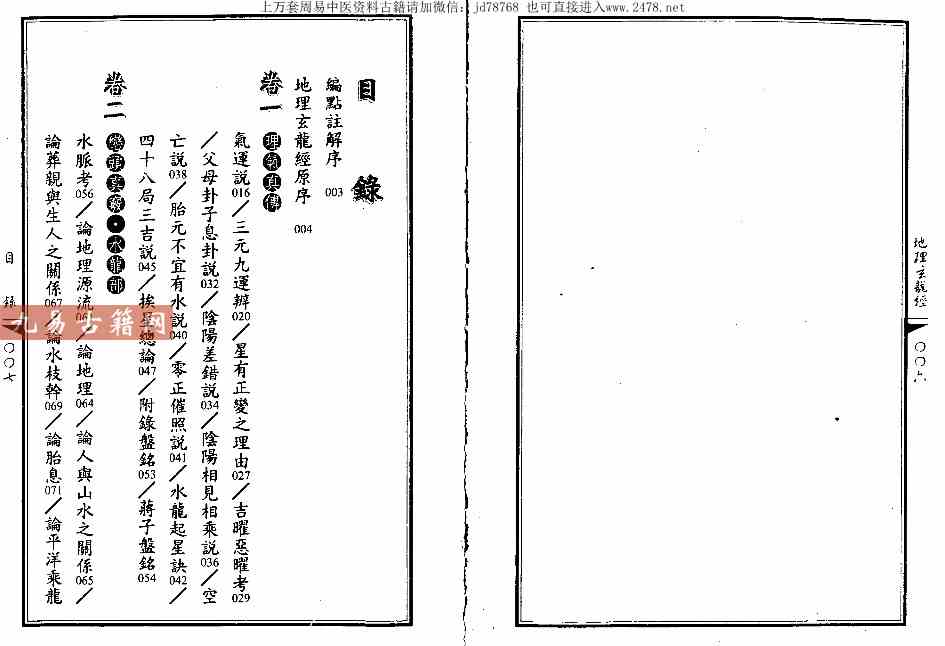 上万套周易中医资料古籍请加微信：jd78768 也可直接进入www.2478.net
地理玄龍經
〇〇六
目錄
編點註解序 003
地理玄龍經原序 004
卷一 理氣真傳
氣運說016／三元九運辨020／星有正變之理由027／吉曜惡曜考029
／父母卦子息卦說032／陰陽差錯說034／陰陽相見相乘說036／空
亡說038／胎元不宜有水說040／零正催照說041／水龍起星訣042／
四十八局三吉說045／挨星總論047／附錄盤銘053／蔣子盤銘054
卷二 巒頭・水龍部
水脈考056／論地理源流06／論地理064／論人與山水之關係065／
論葬親與生人之關係067／論水枝幹069／論胎息071／論平洋乘龍
目錄
〇〇七
九易古籍网